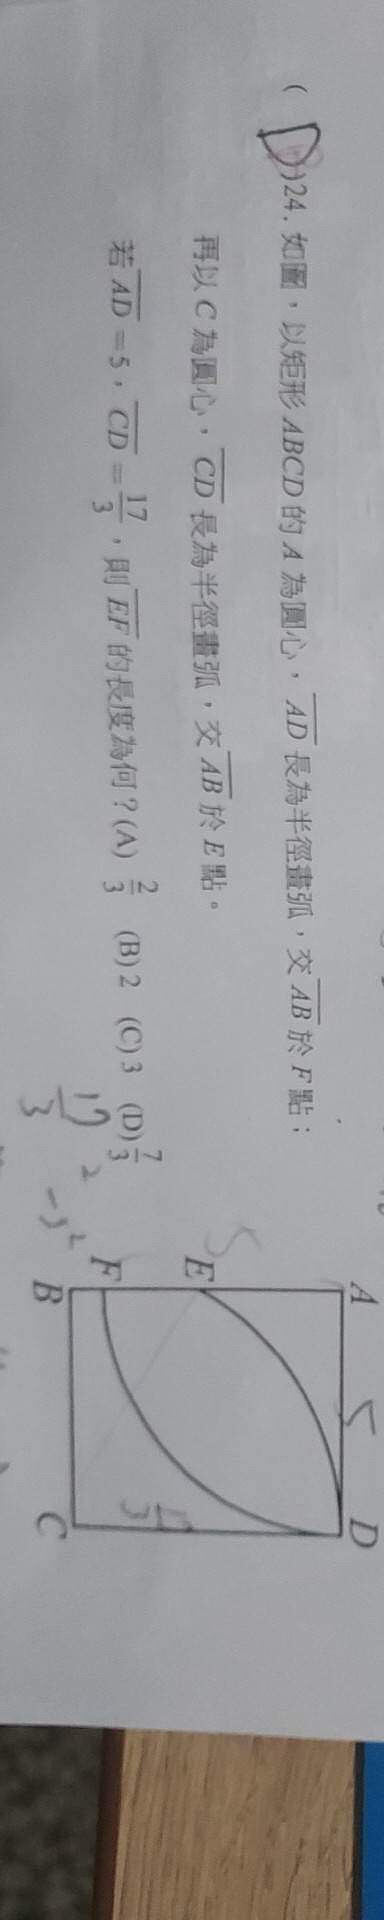 ( D )24. 如圖，以矩形 ABCD 的 A 為圓心，AD 長為半徑畫弧，交 AB 於 F 點；
再以 C 為圓心，CD 長為半徑畫弧，交 AB 於 E 點。
若 AD = 5，CD = 17/3，則 EF 的長度為何？(A) 2/3 (B) 2 (C) 3 (D) 7/3
A 5 D
5
E
F
17/3
B C